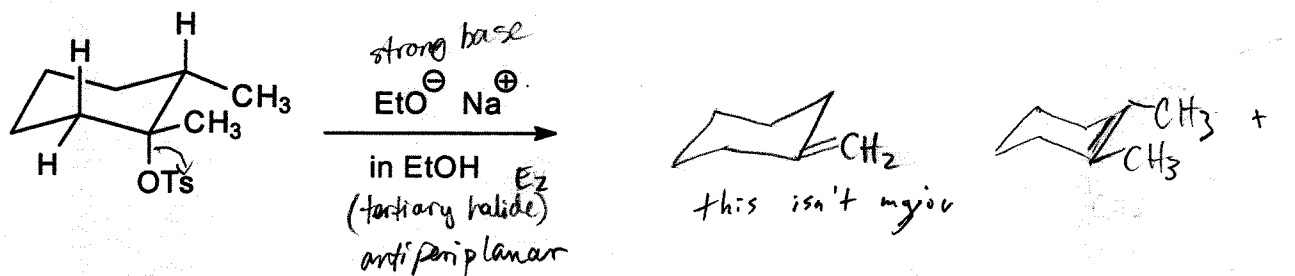 H
H
CH3
CH3
H
OTs
strong base
EtO⊖ Na⊕
in EtOH E2
(tertiary halide)
antiperiplanar
CH2
this isn't major
CH3
CH3
+